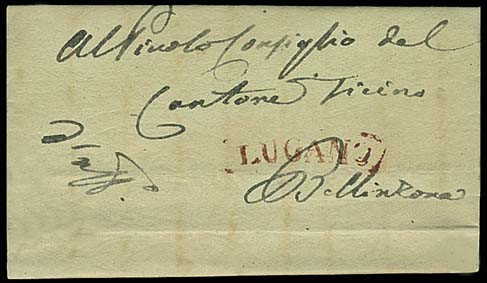 Al Picolo Consiglio del
Cantone Ticino
LUGANO
Bellinzona